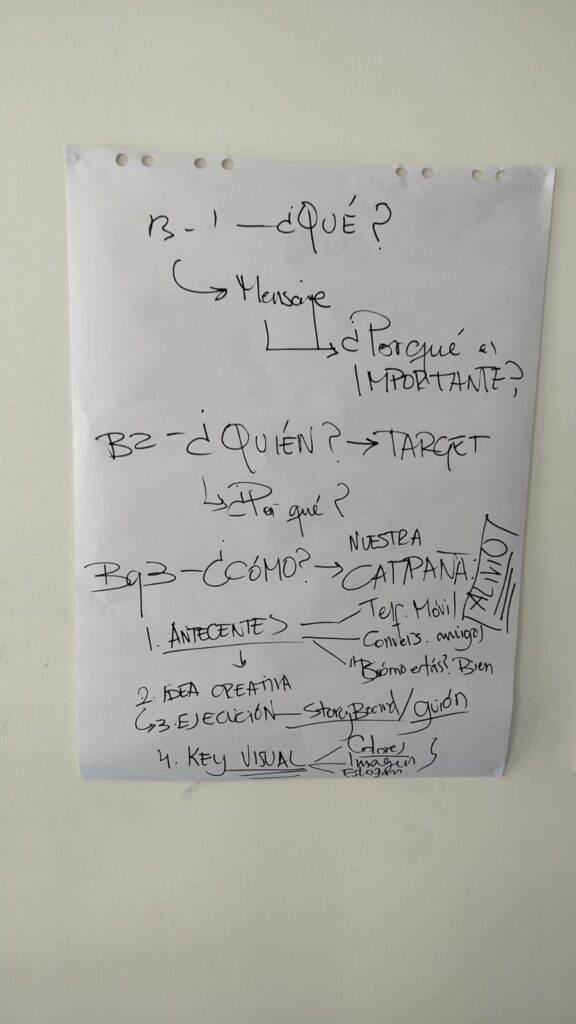 B-1 — ¿QUÉ?
→ Mensaje
→ ¿Porqué es
IMPORTANTE?
B2 - ¿QUIÉN? → TARGET
→ ¿Por qué?
Bq3 - ¿CÓMO? → NUESTRA
CAMPAÑA:
¡ALIVIO!
1. ANTECENTES
Telf. Móvil
Convers. amigos
"¿Cómo estás? Bien
2. IDEA CREATIVA
→ 3. EJECUCIÓN — StoryBoard/guión
4. KEY VISUAL
Colores
Imagen
Eslogan